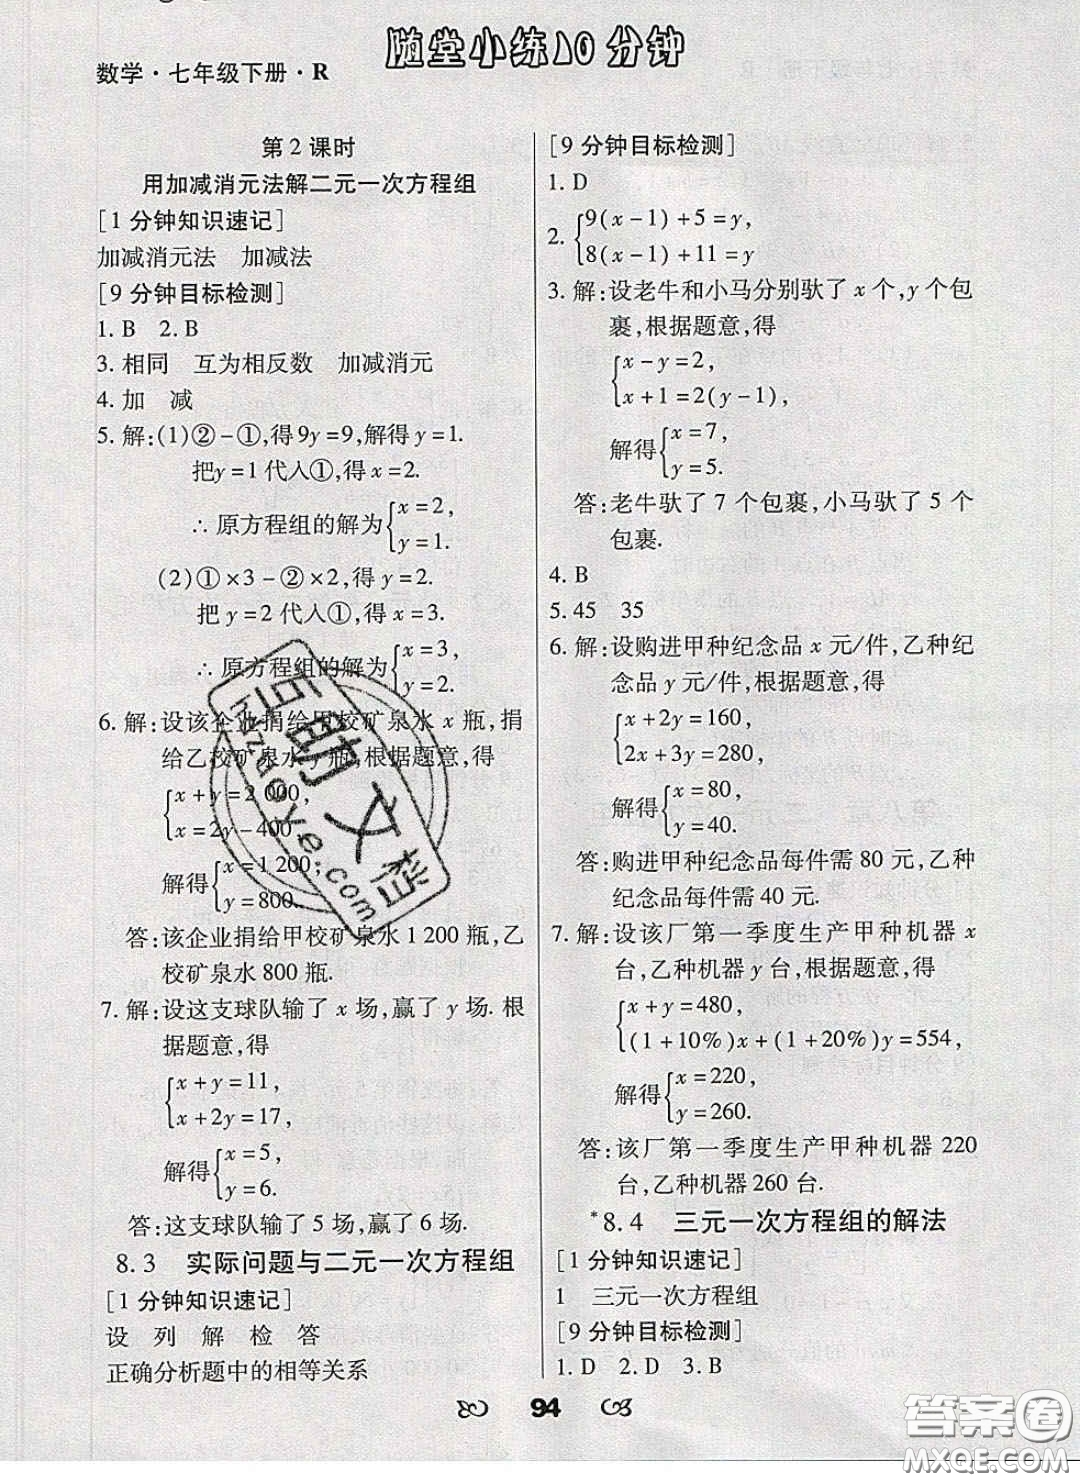 随堂小练10分钟
数学·七年级下册·R
第2课时
用加减消元法解二元一次方程组
[1分钟知识速记]
加减消元法 加减法
[9分钟目标检测]
1. B 2. B
3. 相同 互为相反数 加减消元
4. 加 减
5. 解:(1)②-①,得9y=9,解得y=1.
把y=1代入①,得x=2.
∴原方程组的解为{x=2,
y=1.
(2)①×3-②×2,得y=2.
把y=2代入①,得x=3.
∴原方程组的解为{x=3,
y=2.
6. 解:设该企业捐给甲校矿泉水x瓶,捐
给乙校矿泉水y瓶,根据题意,得
{x+y=2 000,
x=2y-400.
解得{x=1 200,
y=800.
答:该企业捐给甲校矿泉水1 200瓶,乙
校矿泉水800瓶.
7. 解:设这支球队输了x场,赢了y场. 根
据题意,得
{x+y=11,
x+2y=17,
解得{x=5,
y=6.
答:这支球队输了5场,赢了6场.
8.3 实际问题与二元一次方程组
[1分钟知识速记]
设 列 解 检 答
正确分析题中的相等关系
[9分钟目标检测]
1. D
2. {9(x-1)+5=y,
8(x-1)+11=y
3. 解:设老牛和小马分别驮了x个,y个包
裹,根据题意,得
{x-y=2,
x+1=2(y-1),
解得{x=7,
y=5.
答:老牛驮了7个包裹,小马驮了5个
包裹.
4. B
5. 45 35
6. 解:设购进甲种纪念品x元/件,乙种纪
念品y元/件,根据题意,得
{x+2y=160,
2x+3y=280,
解得{x=80,
y=40.
答:购进甲种纪念品每件需80元,乙种
纪念品每件需40元.
7. 解:设该厂第一季度生产甲种机器x
台,乙种机器y台,根据题意,得
{x+y=480,
(1+10%)x+(1+20%)y=554,
解得{x=220,
y=260.
答:该厂第一季度生产甲种机器220
台,乙种机器260台.
*8.4 三元一次方程组的解法
[1分钟知识速记]
1 三元一次方程组
[9分钟目标检测]
1. D 2. D 3. B
94
答案圈
MXQE.COM